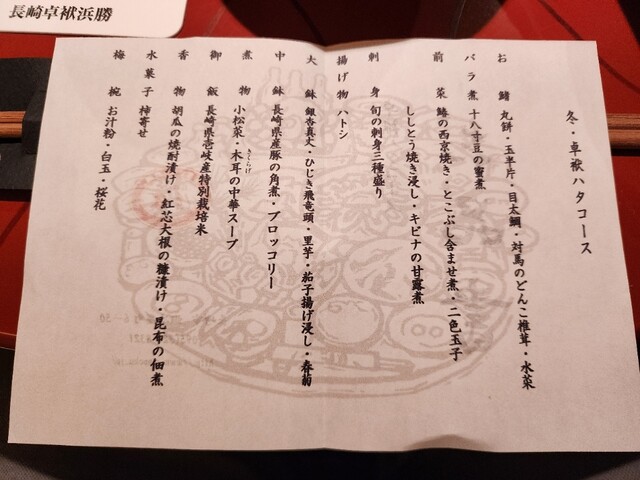 長崎卓袱浜勝
冬・卓袱ハタコース
お鰭 丸餅・玉半片・目太鯛・対馬のどんこ椎茸・水菜
バラ煮 十八寸豆の蜜煮
前菜 鰆の西京焼き・とこぶし含ませ煮・二色玉子
ししとう焼き浸し・キビナの甘露煮
刺身 旬の刺身三種盛り
揚げ物 ハトシ
大鉢 銀杏真丈・ひじき飛竜頭・里芋・茄子揚げ浸し・春菊
中鉢 長崎県産豚の角煮・ブロッコリー
煮物 小松菜・木耳の中華スープ
きくらげ
御飯 長崎県壱岐産特別栽培米
香物 胡瓜の焼酎漬け・紅芯大根の糠漬け・昆布の佃煮
水菓子 柿寄せ
梅椀 お汁粉・白玉・桜花